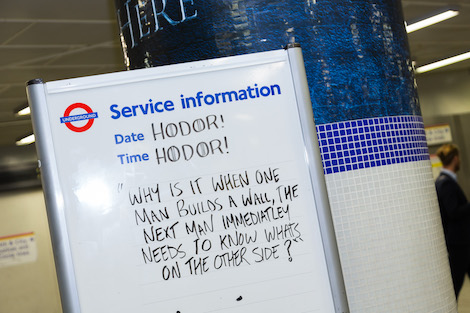 HERE
UNDERGROUND
Service information
Date HODOR!
Time HODOR!
"WHY IS IT WHEN ONE
MAN BUILDS A WALL, THE
NEXT MAN IMMEDIATLEY
NEEDS TO KNOW WHATS
ON THE OTHER SIDE?"